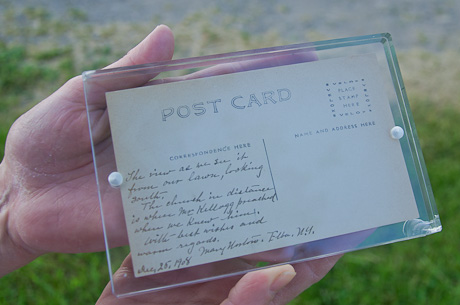 POST CARD
PLACE
STAMP
HERE
CORRESPONDENCE HERE
NAME AND ADDRESS HERE
The view as we see it
from our lawn, looking
south.
The church in distance
is where Mr Kellogg preached
when we knew him.
With best wishes and
warm regards.
Mary Elba, N.Y.